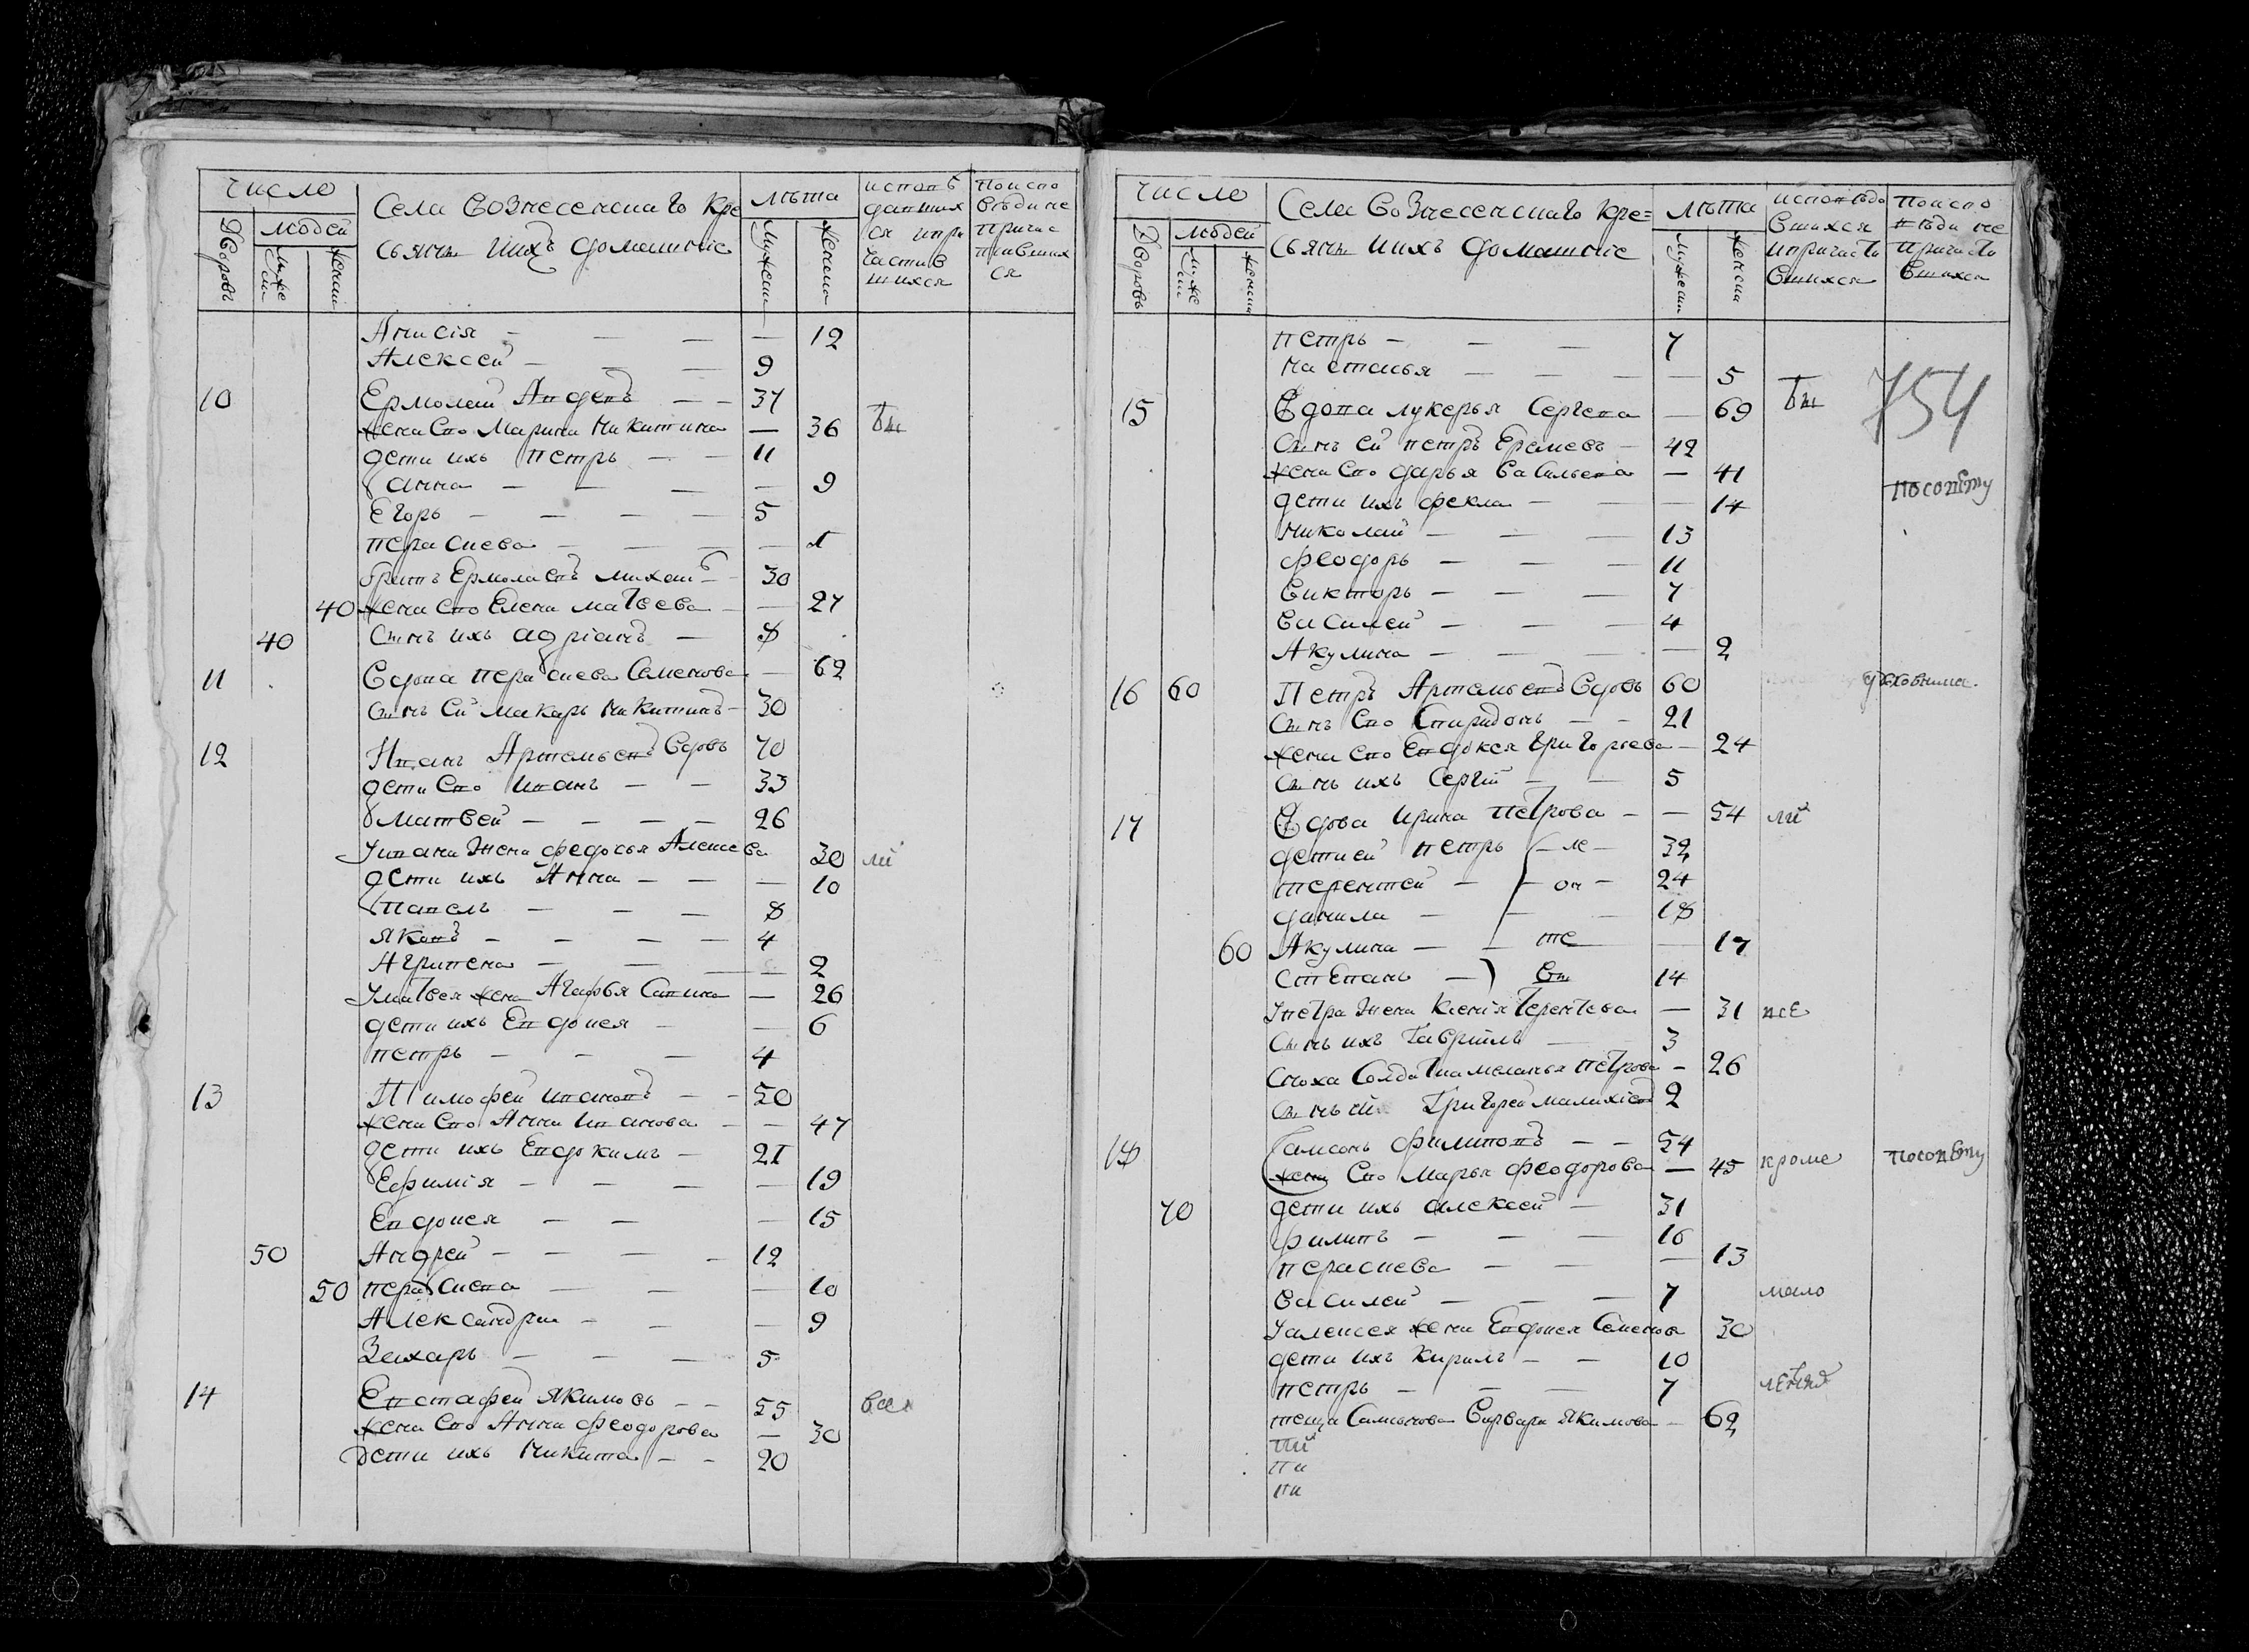 число
Дворовъ
людей
мужески
женски
Села Вознесенскаго кре
стьяне и ихъ домашніе
лѣта
мужески
женски
исповѣ
давших
ся и при
частив
шихся
По испо
вѣди не
причас
тивших
ся
Анисія — — — — 12
Алексей — — — 9
10 Ермолай Авдеевъ — — 37
жена ево Марина Никитина — 36 бы
дети ихъ Петръ — — 11
Анна — — — — 9
Егоръ — — — — 5
Перасковья — — — — 1
Ермолаевъ 30
40 жена ево Елена Матвеева — — 27
40 сынъ ихъ Адріанъ — 8
11 Вдова Перасковья Семенова — 62
сынъ ей Макаръ Никитинъ — 30
12 Иванъ Артемьевъ вдовъ 70
дети ево Иванъ — — 33
Матвей — — — — 26
У Ивана жена Федосья Алексеева 30 ли
дети ихъ Анна — — — 10
Павелъ — — — 8
Яковъ — — — — 4
Агрипена — — — 2
У Матвея жена Агафья Савина — 26
дети ихъ Евдокея — — 6
Петръ — — — 4
13 Тимофей Ивановъ — — 50
жена ево Анна Иванова — — 47
дети ихъ Евдокимъ — 21
Ефимія — — — — 19
Евдокея — — — 15
50 Андрей — — — — 12
50 Перасковья — — — 10
Александра — — — 9
Захаръ — — — 5
14 Евстафей Якимовъ — — 55 вси
жена ево Анна Феодорова — 30
Дети ихъ Никита — — 20
число
Дворовъ
людей
мужески
женски
Села Вознесенскаго кре=
стьяне и ихъ домашніе
лѣта
мужески
женски
исповѣдо
вшихся
и причасти
вшихся
По испо
вѣди не
причасти
вшихся
Петръ — — — 7
Настасья — — — — 5
15 Вдова Лукерья Сергеева — 69 бы
754
сынъ ей Петръ Еремеевъ — 42
жена ево Дарья Васильева — 41
дети ихъ Фекла — — — 14 по совѣту
Николай — — — 13
Феодоръ — — — 11
Викторъ — — — 7
Василей — — — 4
Акулина — — — — 2
16 60 Петръ Артемьевъ вдовъ 60 духовника.
сынъ ево Спиридонъ — — 21
жена ево Евдокея Григорьева — 24
сынъ ихъ Сергій — — 5
17 Вдова Ирина Петрова — — 54 ли
дети ей Петръ — 32
Терентей — — он — 24
Данила — — — 18
60 Акулина — — те — 17
Степанъ — 14
У Петра жена Ксенія Терентева — 31 все
сынъ ихъ Гаврійлъ — 3
сноха солдатка Меланья Петрова — 26
сынъ ей Григорей 2
18 Самсонъ Филиповъ — — 54
жена ево Марья Феодорова — 45 кроме по совѣту
70 дети ихъ Алексей — 31
Филипъ — — — 16
Перасковья — — — 13
Василей — — — 7 мало
У Алексея жена Евдокея Семенова 30
дети ихъ Кирилъ — — 10
Петръ — — — 7 летныхъ
теща Варвара Якимова — 62
пи
пи
пи